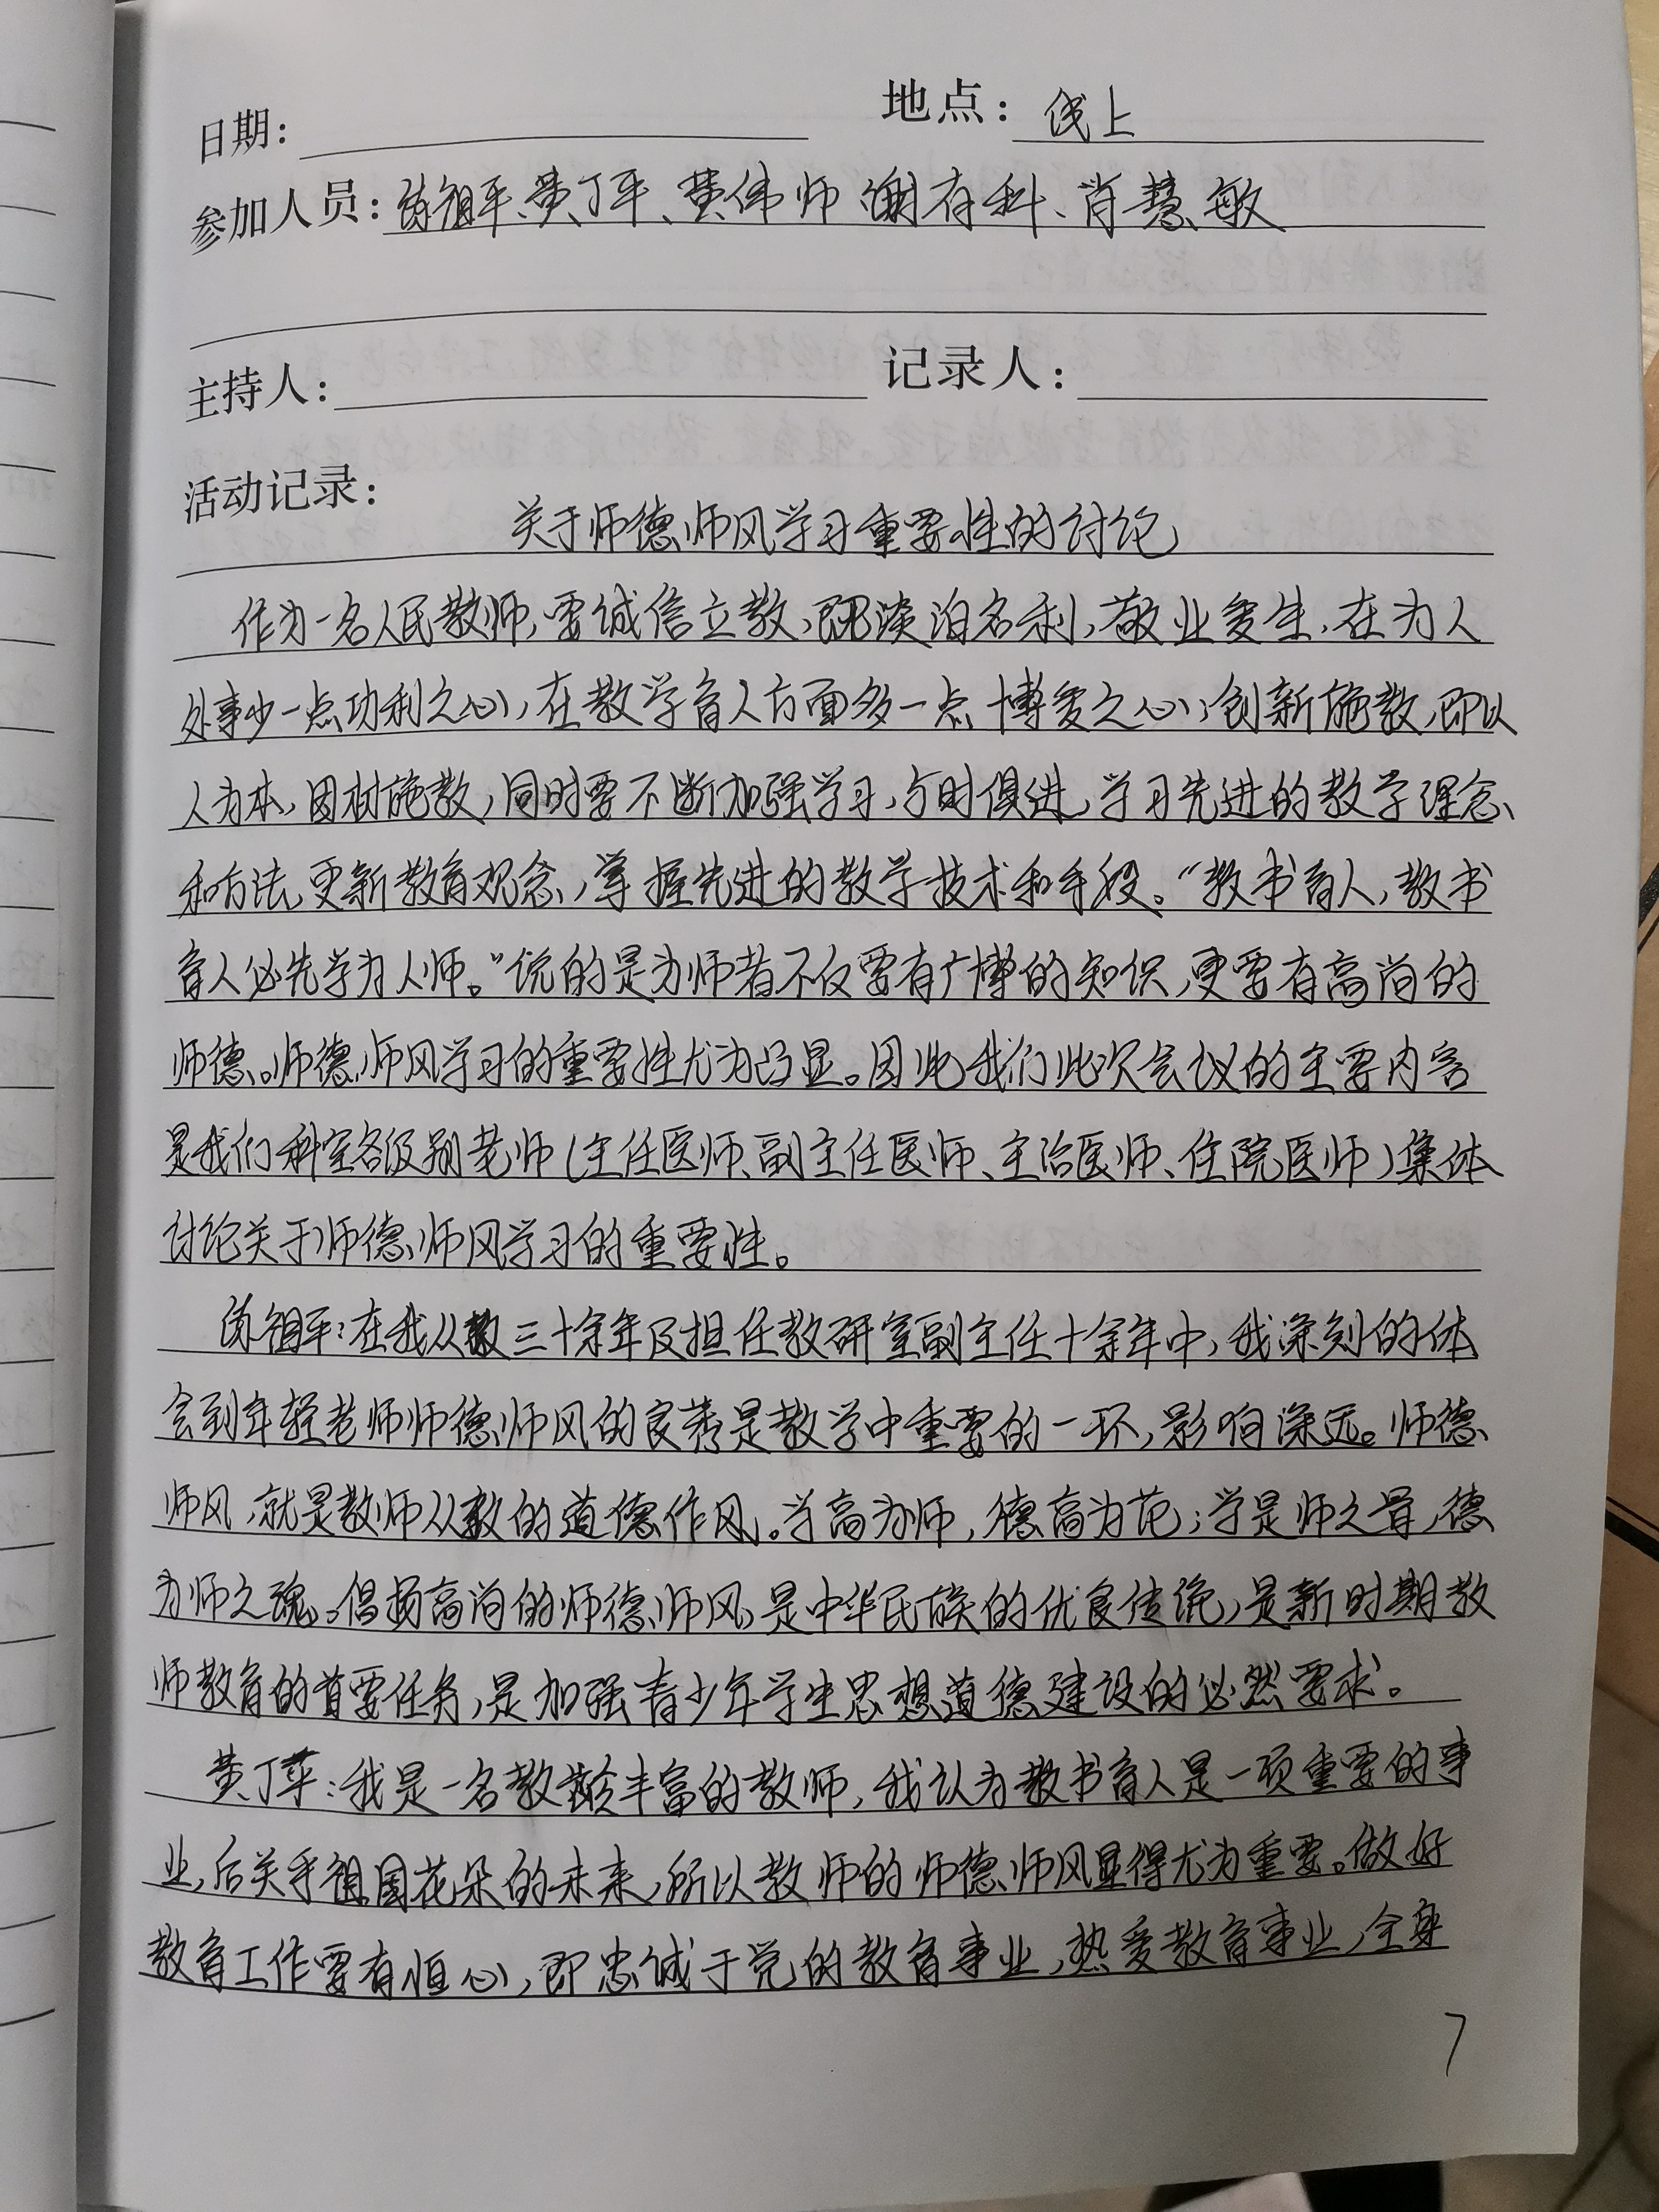 日期： 地点：线上
参加人员：陈祖平、黄丁平、黄伟师 谢有科、肖慧敏
主持人： 记录人：
活动记录：
关于师德师风学习重要性的讨论
作为一名人民教师，要诚信立教，即淡泊名利，敬业爱生，在为人
处事少一点功利之心，在教学育人方面多一点博爱之心；创新施教，即以
人为本，因材施教，同时要不断加强学习，与时俱进，学习先进的教学理念
和方法，更新教育观念，掌握先进的教学技术和手段。“教书育人，教书
育人必先学为人师。”说的是为师者不仅要有广博的知识，更要有高尚的
师德。师德师风学习的重要性尤为凸显。因此我们此次会议的主要内容
是我们科室各级别老师（主任医师、副主任医师、主治医师、住院医师）集体
讨论关于师德师风学习的重要性。
陈祖平：在我从教三十余年及担任教研室副主任十余年中，我深刻的体
会到年轻老师师德师风的良莠是教学中重要的一环，影响深远。师德
师风，就是教师从教的道德作风。学高为师，德高为范；学是师之骨，德
为师之魂。倡扬高尚的师德师风，是中华民族的优良传统，是新时期教
师教育的首要任务，是加强青少年学生思想道德建设的必然要求。
黄丁苹：我是一名教龄丰富的教师，我认为教书育人是一项重要的事
业，后关乎祖国花朵的未来，所以教师的师德师风显得尤为重要。做好
教育工作要有恒心，即忠诚于党的教育事业，热爱教育事业，全身
7